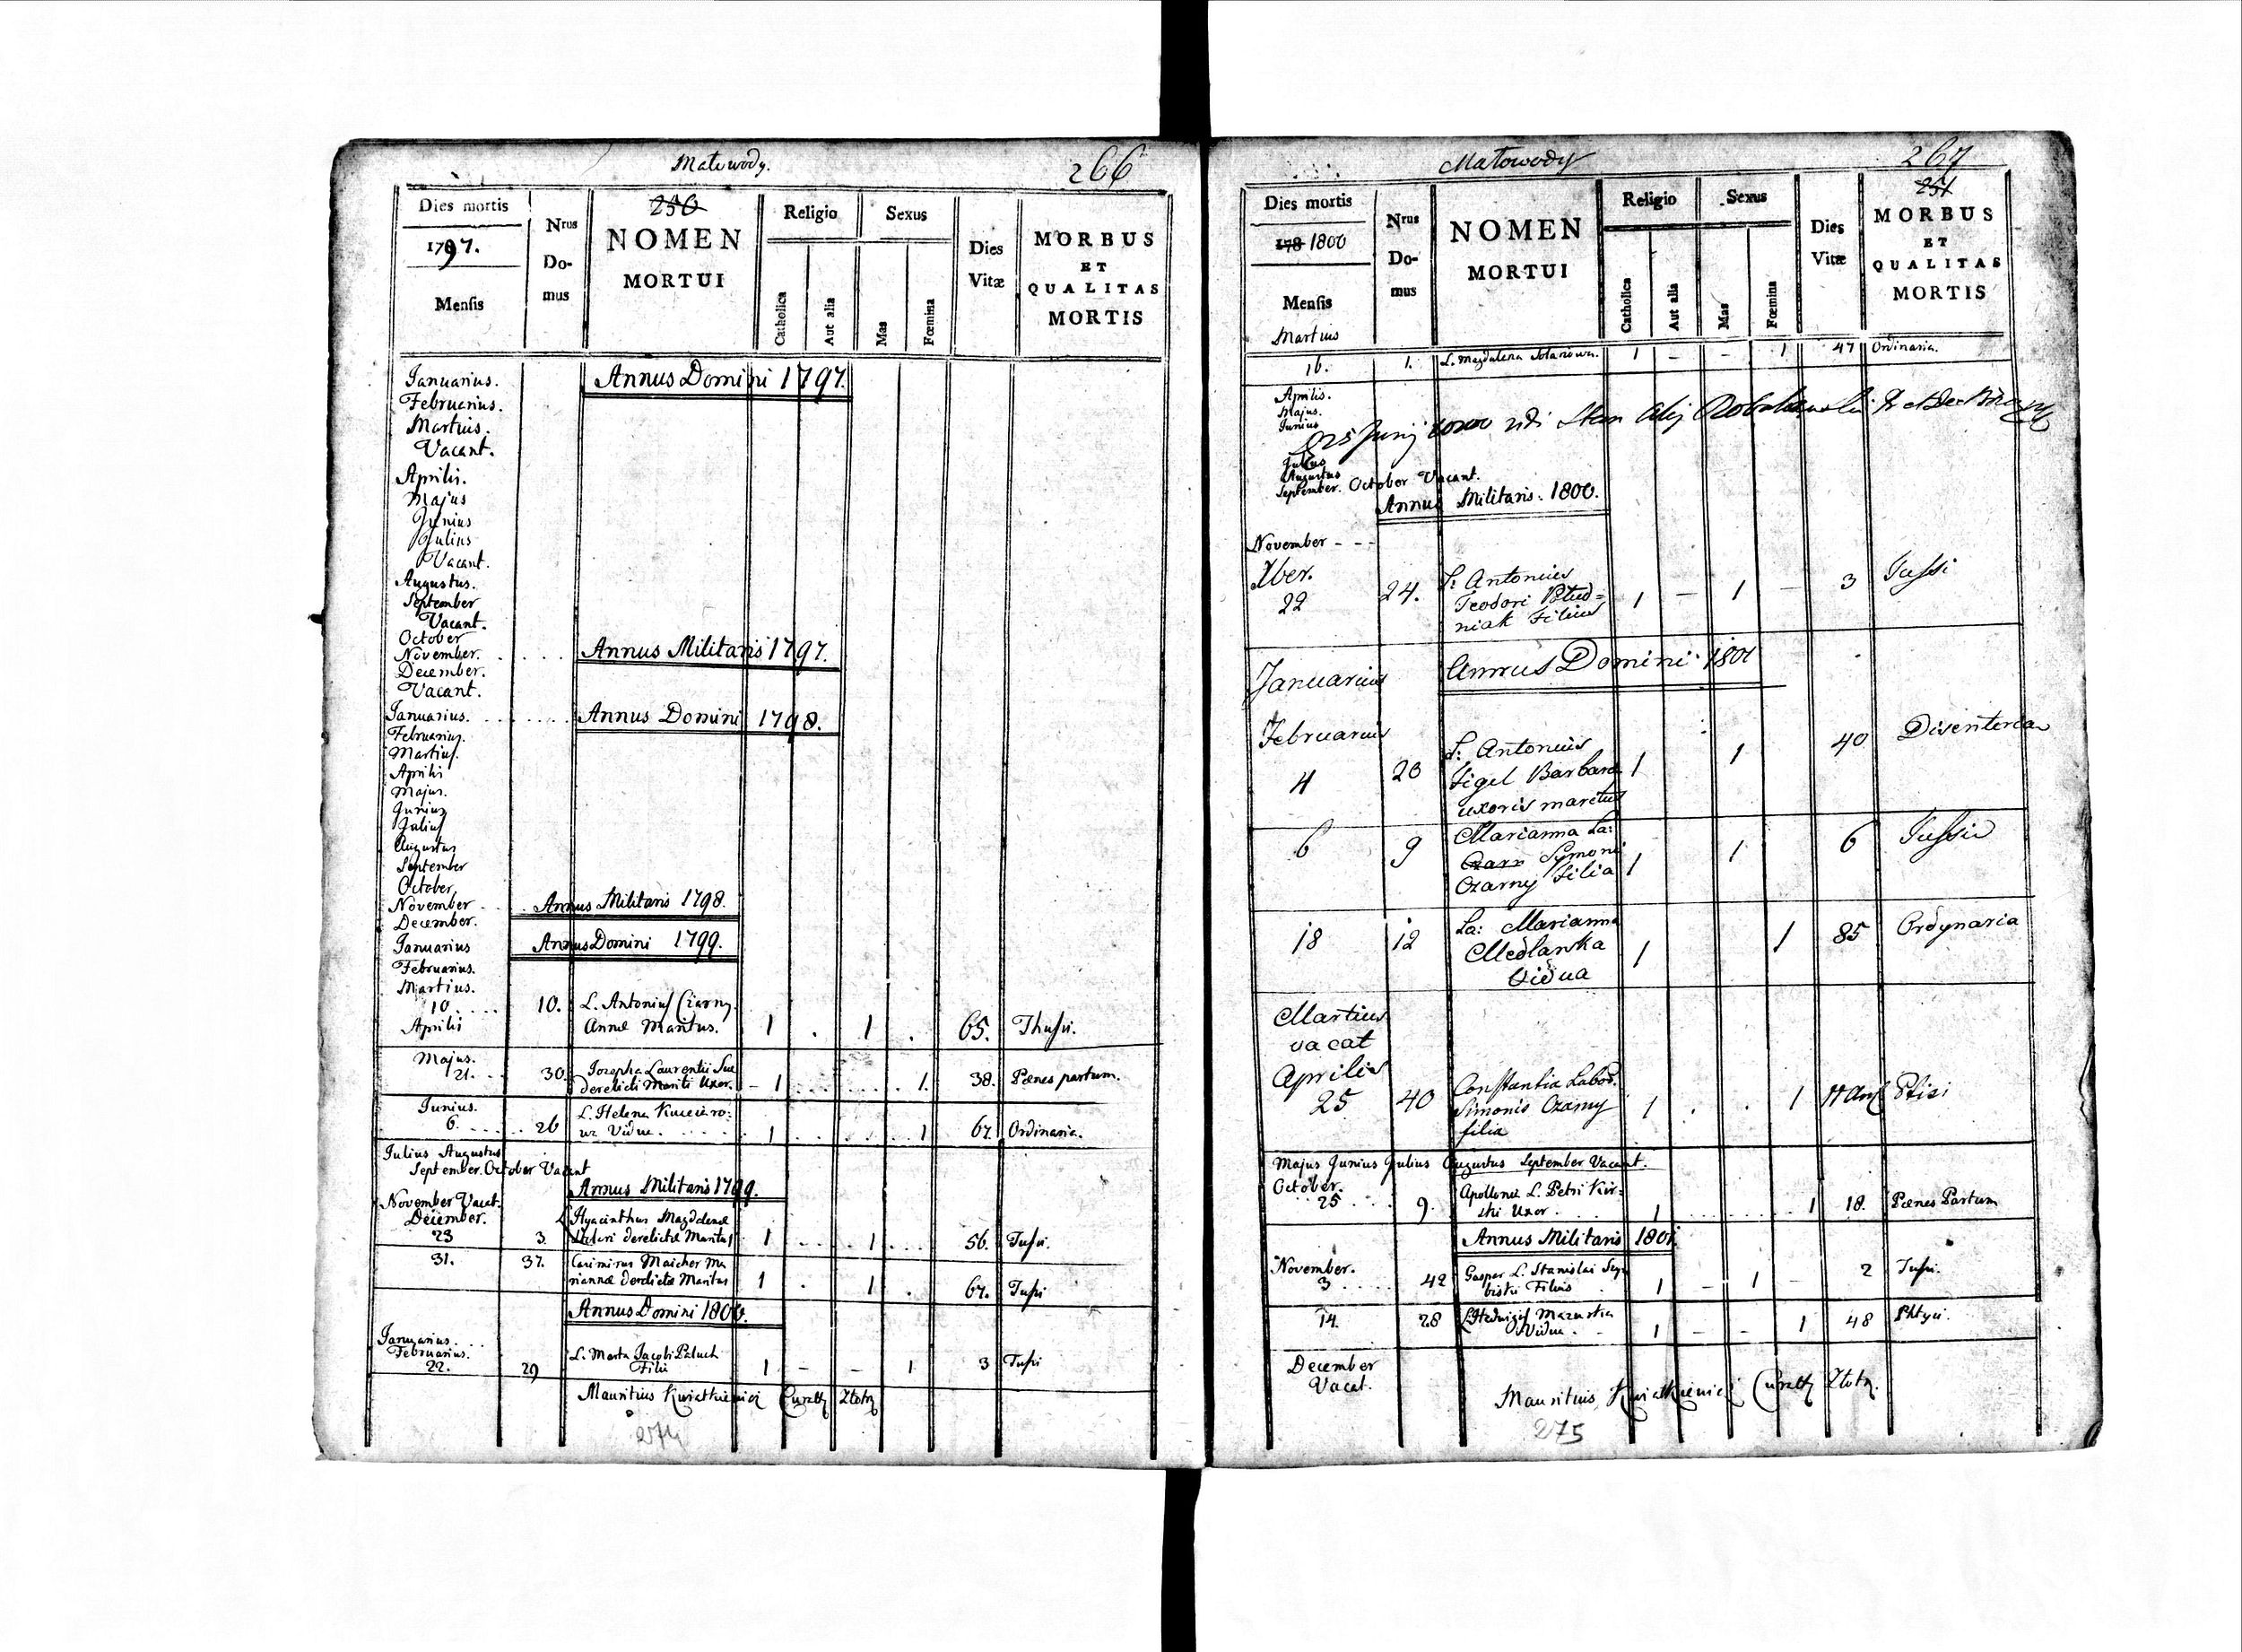 Małowody.
266
Dies mortis
1797.
Mensis
Nrus
Do-
mus
250
NOMEN
MORTUI
Religio
Catholica
Aut alia
Sexus
Mas
Fœmina
Dies
Vitæ
MORBUS
ET
QUALITAS
MORTIS
Januarius. Annus Domini 1797.
Februarius.
Martius.
Vacant.
Aprilis.
Majus
Junius
Julius
Vacant.
Augustus.
September
Vacant.
October
November. Annus Militaris 1797.
December.
Vacant.
Januarius. Annus Domini 1798.
Februarius.
Martius.
Aprilis
Majus.
Junius
Julius
Augustus
September
October
November Annus Militaris 1798.
December.
Januarius Annus Domini 1799.
Februarius.
Martius.
10 10. L. Antonius Czarny
Aprilis Annæ Maritus. 1 . 1 . 65. Thussi.
Majus.
21. 30. Josepha Laurentii
derelicti Mariti Uxor. - 1 1. 38. Pænes partum.
Junius. L. Helena
6. 26 Vidua. 1 1 67. Ordinaria.
Julius Augustus
September. October Vacant
Annus Militaris 1799.
November Vacat.
December. L. Hyacinthus Magdalenæ
23 3. derelictæ Maritus 1 1 56. Tussi.
31. 37. Casimirus Maicher Ma
riannæ derelictæ Maritus 1 . 1 . 67. Tussi
Annus Domini 1800.
Januarius.
Februarius. L. Marta Jacobi Paluch
22. 29 Filii 1 - - 1 3 Tussi
Mauritius Kwiatkiewicz Curatus
274
Małowody
267
Dies mortis
178 1800
Mensis
Martius
Nrus
Do-
mus
NOMEN
MORTUI
Religio
Catholica
Aut alia
Sexus
Mas
Fœmina
Dies
Vitæ
251
MORBUS
ET
QUALITAS
MORTIS
16. 1. L. Magdalena 1 - - 1 47 Ordinaria.
Aprilis.
Majus.
Junius
Julius
Augustus
September. October Vacant.
Annus Militaris 1800.
November - - -
Xber. L: Antonius
22 24. Teodori Pstud=
niak Filius 1 - 1 - 3 Tussi
Januarius Annus Domini 1801
Februarius
4 20 L: Antonius
Figel Barbara
uxoris maritus 1 1 40 Disenteria
6 9 Marianna La:
Czarn Symoni
Czarny Filia 1 1 6 Tussis
18 12 La: Marianna
Medlarska
Vidua 1 1 85 Ordynaria
Martius
vacat
Aprilis
25 40 Constantia Labor.
Simonis Czarny
filia 1 . . 1 Ptisi
Majus Junius Julius Augustus September Vacant.
October. Apollonia L. Petri
25 9. Uxor 1 1 18. Pænes Partum
Annus Militaris 1801.
November. Gaspar L. Stanislai
3 42 Filius 1 - 1 - 2 Tussi.
14. 28 L. Hedwigis
Vidua. 1 - - 1 48 Phtysi.
December
Vacat.
Mauritius Kwiatkiewicz Curatus
275